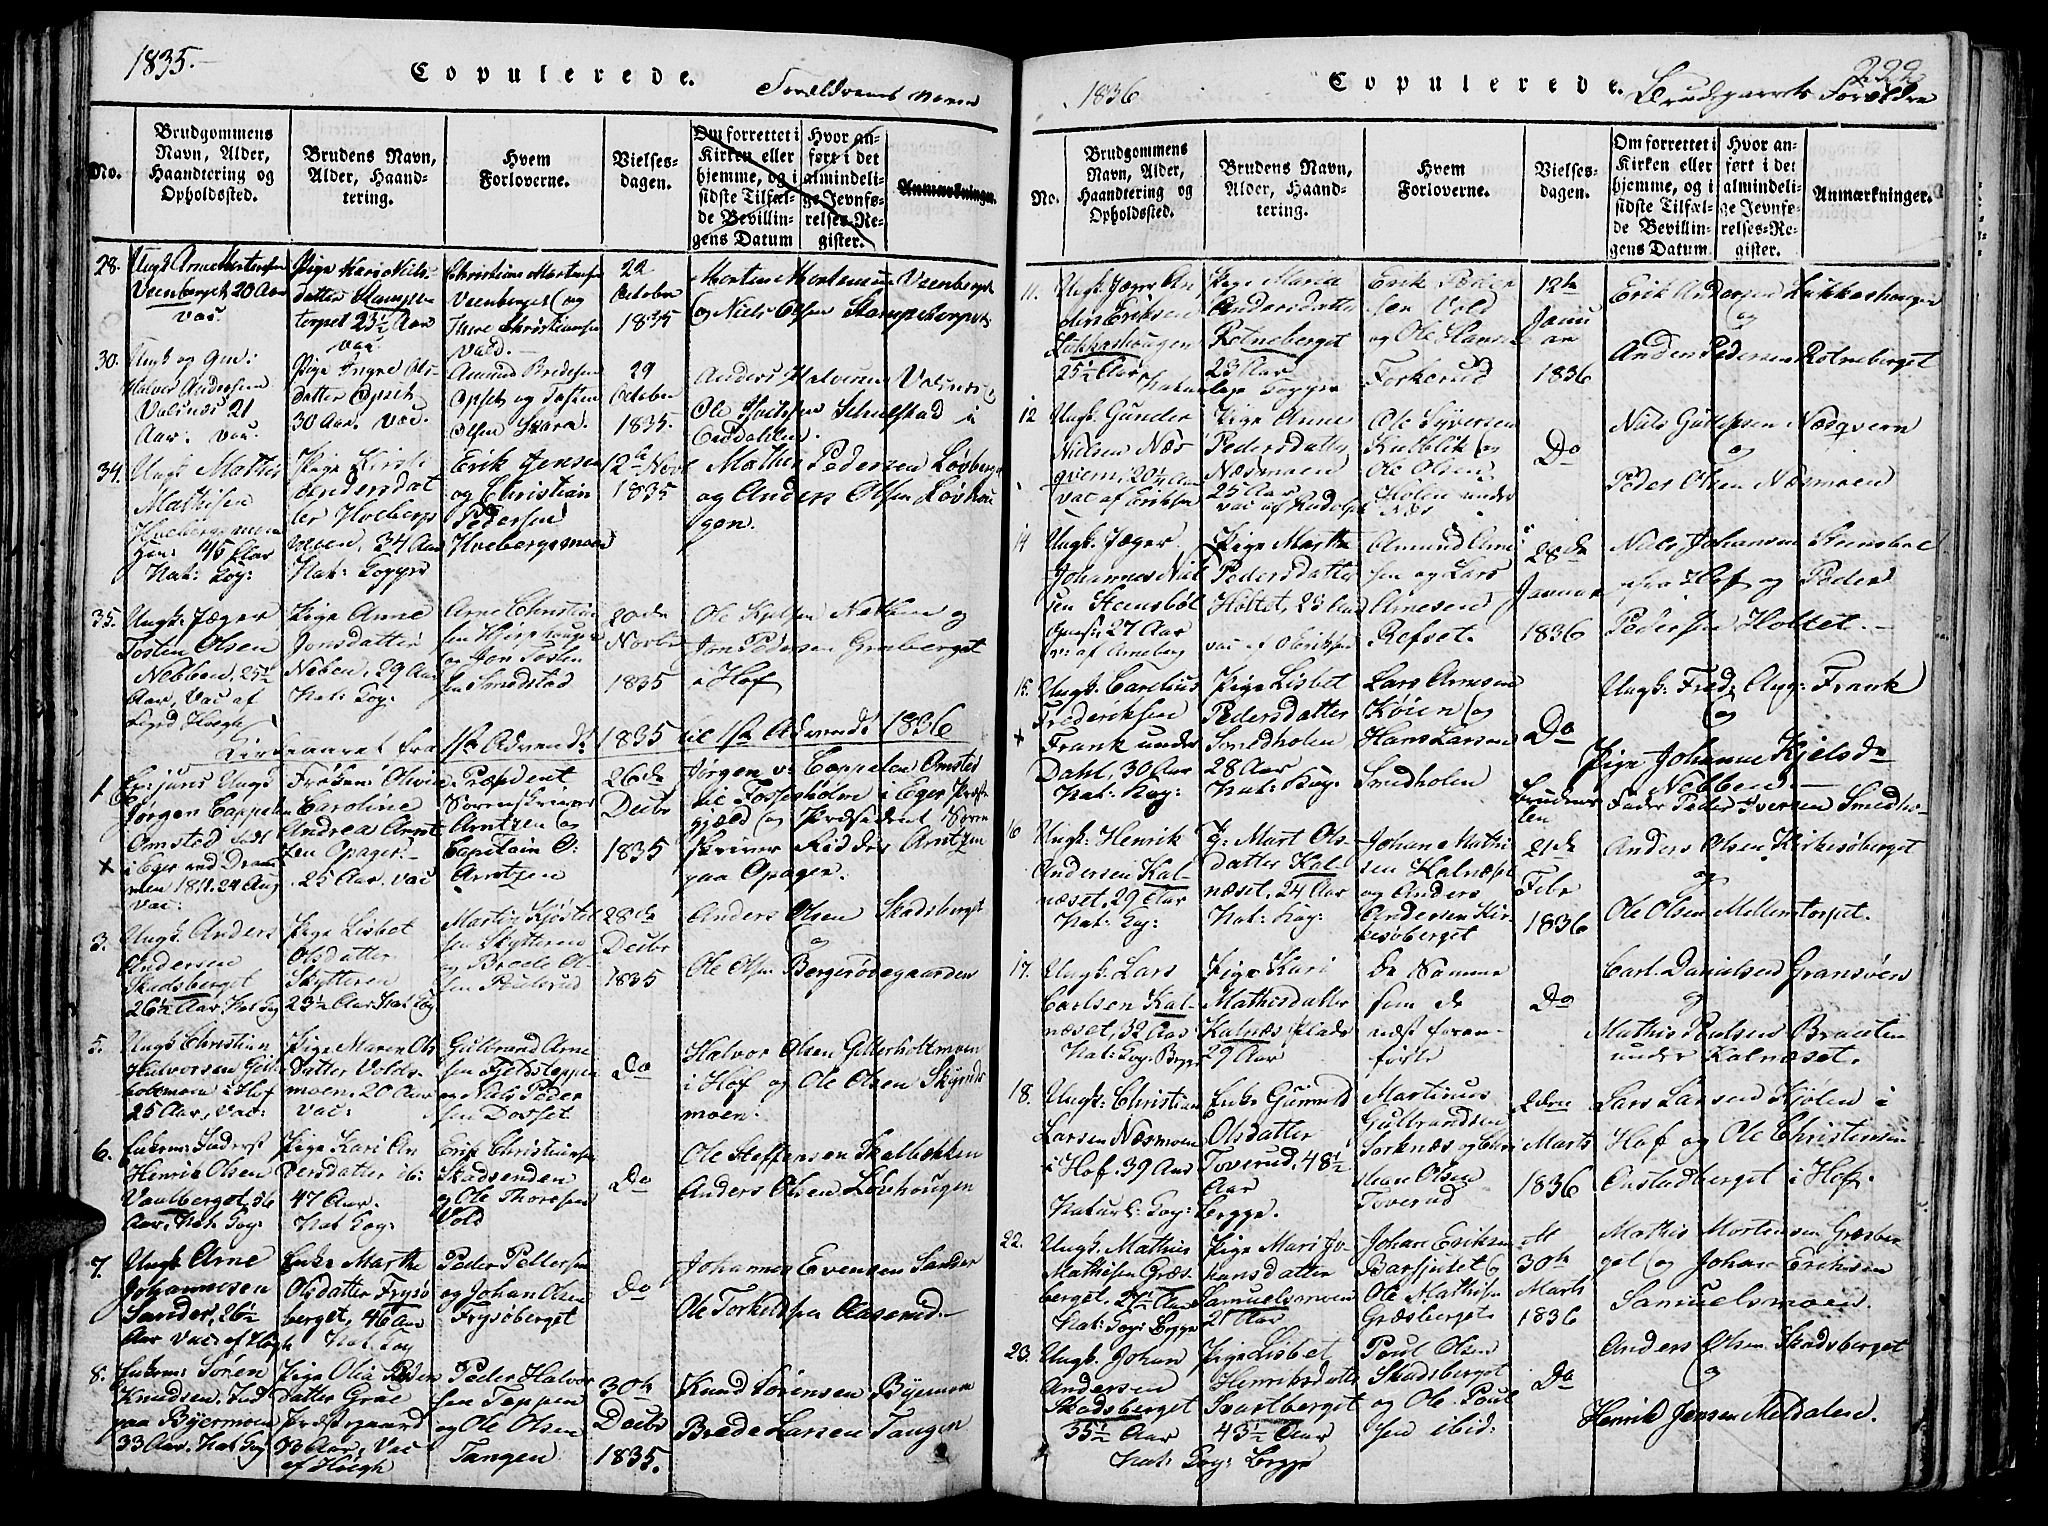 1835.
Copulerede.
Forældrenes Navne
No.
Brudgommens Navn, Alder, Haandtering og Opholdssted.
Brudens Navn, Alder, Haandtering.
Hvem Forloverne.
Vielsesdagen.
Om forrettet i Kirken eller hjemme, og i sidste Tilfælde Bevillingens Datum
Hvor anført i det almindelige Jevnførelses-Register.
Anmærkninger.
28.
Ungk Arne Mortensen
Veenberget 20 Aar
vac.
Pige Kari Niels-
datter Stampe-
torpet 23½ Aar
vac
Christian Mortensen
Veenberget og
Christiansen
Vold.
22
October
1835
Morten Mortensen Veenberget
og Niels Olsen Stampetorpet
30.
Ungk og
Halvor Andersen
Valsnæs 21
Aar. vac.
Pige Ingre Ols-
datter Opset
30 Aar. vac.
Amund Bredesen
Opset og Tosten
Olsen Skara.
29
October
1835.
Anders Halvorsen Valsnæs
Ole Schulstad i
Ouddahlen.
34.
Ungk Mathis
Mathisen
Hvebergsmoen
45 Aar
Nat: Kop:
Pige Kirsti
Andersdat
ter Hvebergs
moen, 34 Aar
Nat: Kopper
Erik Jensen
og Christian
Pedersen
Hvebergsmoen
12te Novbr
1835
Mathis Pedersen Løvberget
og Anders Olsen Løvhau
gen.
35.
Ungk. Jæger
Tosten Olsen
Nebben, 25½
Aar, Vac af
Høegh
Pige Anne
Jonsdatter
Neben, 29 Aar
Nat: Kop:
Arne Christian
sen
og Jon Tosten
sen Smedstad
20de
Novbr
1835
Ole Kjelsen Nebben og
Jon Pedersen Grøneberget
i Hof
Kirkeaaret fra 1ste Advend: 1835 til 1ste Advend: 1836
1.
Ex: juris Ungk
Jørgen Cappelen
Omsted født
i Eger ved Dram
men 1811. 24 Aug
vac:
Frøken Olivia
Caroline
Andrea Arnt
zen Opager.
25 Aar. vac
Præsident
Sorenskriver
Arntzen og
Capitain O:
Arntzen
26de
Decbr
1835
Jørgen v: Cappelen Omsted
til Fossesholm i Eger Præste
gjæld og Præsident Soren
skriver Ridder Arntzen
paa Opager.
3.
Ungk. Anders
Andersen
Skadsberget
26½ Aar. Nat Kop
Pige Lisbet
Olsdatter
Skytteren
23½ Aar. Nat Kop
Martin Kjøstel
sen Skytteren
og Brede Ol
sen Poulerud
28de
Decbr
1835
Anders Olsen Skadsberget
og
Ole Olsen Bergersøegaarden
5.
Ungk Christian
Halvorsen Geiter
holtmoen i Hof
25 Aar, vac:
Pige Maren Ols
datter Volds-
moen. 20 Aar
vac:
Gulbrand Arne
sen Fjeldsteppen
og Niels Peder
sen Dorset
Do
Halvor Olsen Getterholtmoen
i Hof og Ole Olsen Skynds
moen.
6.
Enkem: Inderst
Henrik Olsen
Vaalberget, 56
Aar, Nat. Kop:
Pige Kari An
dersdatter ib:
47 Aar.
Nat Kop:
Erik Christiansen
Skadsenden
og Ole Thoresen
Vold
Do
Ole Steffensen Skalbækken
Anders Olsen Løvhougen
7.
Ungk Arne
Johannesen
Sander, 26½
Aar Vac. af Høegh
Enke Marthe
Olsdatter Frysø
berget, 46 Aar
Nat Kop
Peder Pettersen
og Johan Olsen
Frysøberget
Do
Johannes Evensen Sander
Ole Torkeldsen Aaserud.
8.
Enkem: Søren
Knudsen, Ind
paa Byermoen
33 Aar. Nat Kop
Pige Olia Peders
datter Grue
Præstegaard
33 Aar, Vac
af Høegh
Peder Halvor
sen Teppen
og Ole Olsen
Tangen
30te
Decbr
1835.
Knud Sørensen Byermoen
Brede Larsen Tangen
1836
Copulerede.
222
Brudeparrets Forældre
No.
Brudgommens Navn, Alder, Haandtering og Opholdssted.
Brudens Navn, Alder, Haandtering.
Hvem Forloverne.
Vielsesdagen.
Om forrettet i Kirken eller hjemme, og i sidste Tilfælde Bevillingens Datum.
Hvor anført i det almindelige Jevnførelses-Register.
Anmærkninger.
11.
Ungk. Jæger An
ders Eriksen
Lükkashougen
25½ Aar
Pige Maria
Andersdatter
Rotneberget
23 Aar
Naturlige Kopper
Erik Peder
sen Vold
og Ole Hansen
Torkerud
12te
Janu
ar
1836
Erik Andersen Lükkashougen
og
Anders Pedersen Rotneberget
12
Ungk. Gunder
Nielsen Næs
qvern, 20½ Aar
vac af Eriksen
Pige Anne
Pedersdatter
Næsmoen
25 Aar
vac af Rudolph
Ole Syversen
Kalblik og
Ole Olsen
Holen under
Næs
Do
Niels Guttepsen Næsqvern
og
Peder Olsen Næsmoen
14
Ungk. Jæger
Johannes Niel
sen Stensbøl
27 Aar
v: af Arneberg
Pige Marthe
Pedersdatter
Holtet, 23 Aar
vac af Obriksen
Amund Arne
sen og Lars
Arnesen
Refset.
28de
Januar
1836
Niels Johansen Stensbøl
fra Hof og Peder
Pedersen Holtet.
15.
Ungk. Carelius
Frederiksen
Frank under
Dahl, 30 Aar
Nat: Kop:
Pige Lisbet
Pedersdatter
Smedholen
28 Aar
Nat: Kop:
Lars Arnesen
Kvien og
Hans Larsen
Smedholen
Do
Brudens
Ungk: Fred: Aug: Frank
og
Pige Johanne Kjelsdr
Nebben.
Fader Peder Iversen Smedho-
len
16
Ungk: Henrik
Andersen Kal
næset, 29 Aar
Nat: Kop:
P: Mart Ols-
datter Kal
næset, 24 Aar
Nat: Kop:
Johan Mathi
sen Kalnæset
og Anders
Andersen Kir
kesøberget
21de
Febr
1836
Anders Olsen Kirkesøberget
og
Ole Olsen Mellemtorpet.
17.
Ungk: Lars
Carlsen Kal-
næset, 32 Aar
Nat: Kop: Begge
Pige Kari
Mathisdatter
Kalnæs plads
29 Aar
de Samme
som de
næst foran-
førte
Do
Carl Danielsen Gransøen
og
Mathis Poulsen Braaten
under Kalnæset.
18.
Ungk: Christian
Larsen Næsmoen
i Hof, 39 Aar
Naturl: Kop: Begge.
Enke Gunnild
Olsdatter
Toverud. 48½
Aar
Martinus
Gulbrandsen
Sorknæs og Chri
stian Olsen
Toverud
2den
Marts
1836
Lars Larsen Kjølen i
Hof og Ole Christensen
Onstadberget i Hof.
22.
Ungk. Mathis
Mathisen Græs-
berget. 27½ Aar
Nat: Kop: Begge
Pige Mari Jo-
hansdatter
Samuelsmoen
21 Aar
Johan Eriksen
Barsjutet og
Ole Mathisen
Græsberget
30te
Marts
1836
Mathis Mortensen Græsber
get og Johan Eriksen
Samuelsmoen.
23.
Ungk. Johan
Andersen
Skadsberget
35½ Aar
Nat: Kop: Begge
Pige Lisbet
Henriksdatter
Svartberget
43½ Aar
Poul Olsen
Skadsberget
og Ole Poul
sen ibid:
Do
Anders Olsen Skadsberget
og
Henrik Jensen Meldalen.